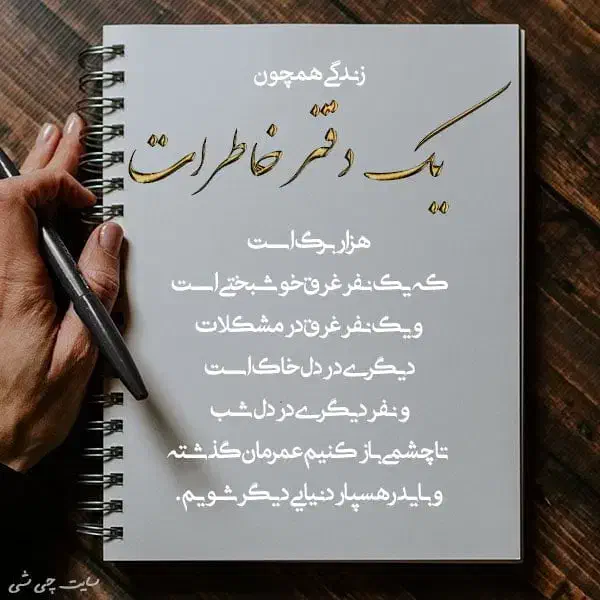 زندگی همچون
یک دفتر خاطرات
هزار برگ است
که یک نفر غرق خوشبختی است
و یک نفر غرق در مشکلات
دیگری در دل خاک است
و نفر دیگری در دل شب
تا چشمی باز کنیم عمرمان گذشته
و باید رهسپار دنیایی دیگر شویم.
سایت چی شی